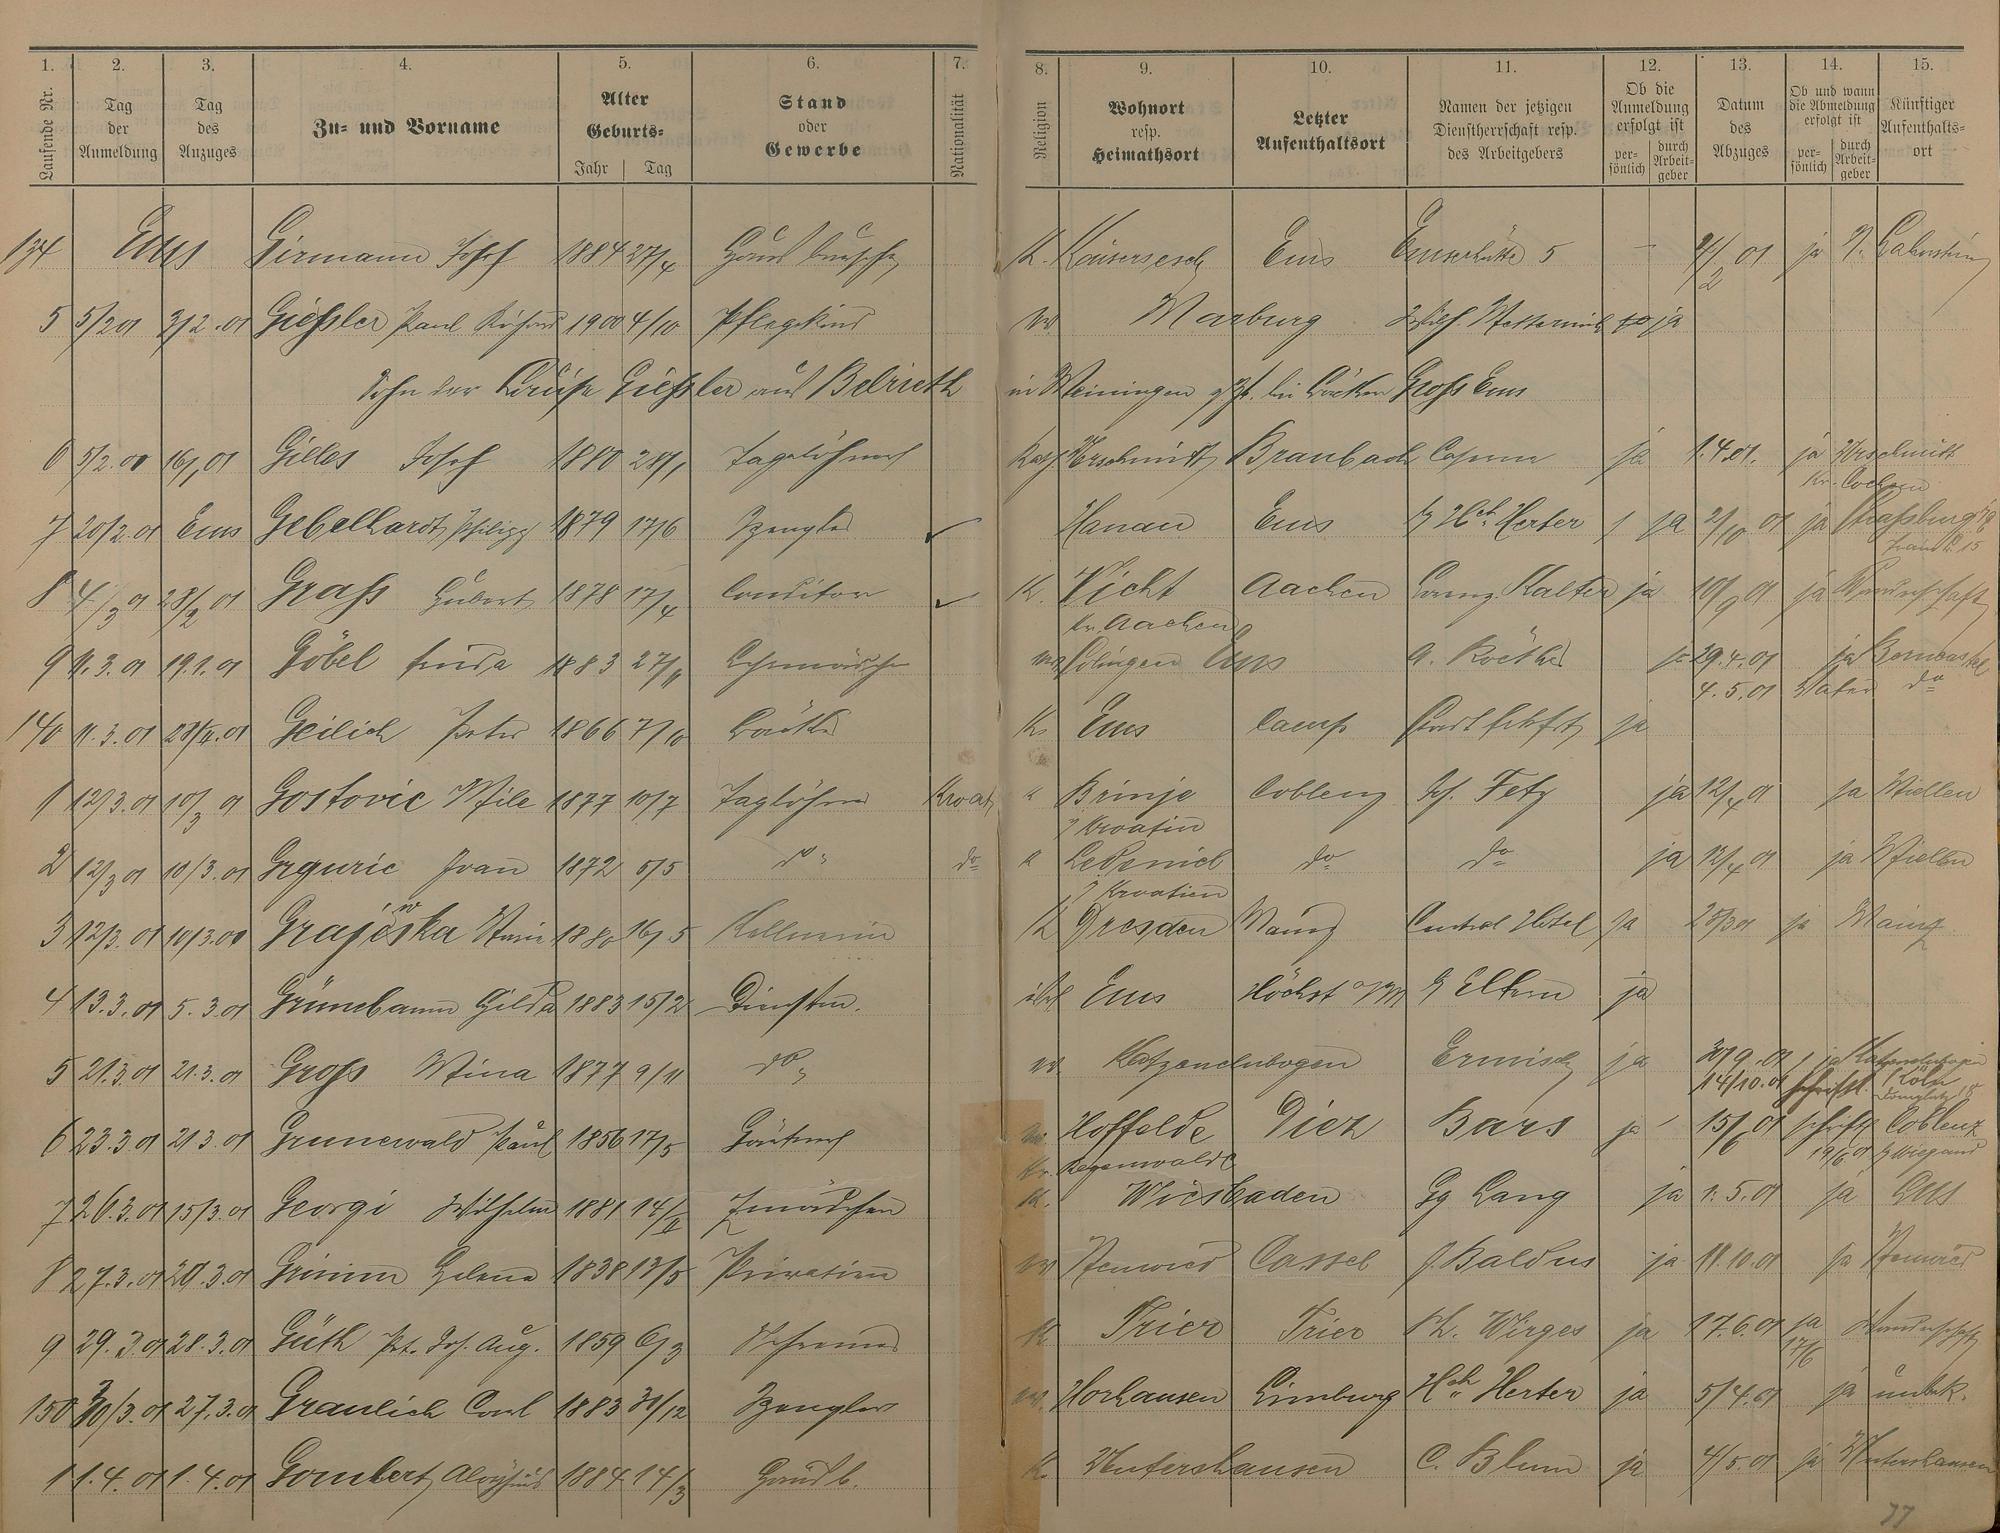 1. 2. 3. 4. 5. 6. 7. 8. 9. 10. 11. 12. 13. 14. 15.
Laufende Nr. Tag der Anmeldung Tag des Anzuges Zu- und Vorname Alter Geburts- Jahr Tag Stand oder Gewerbe Nationalität Religion Wohnort resp. Heimathsort Letzter Aufenthaltsort Namen der jetzigen Dienstherrschaft resp. des Arbeitgebers Ob die Anmeldung erfolgt ist persönlich durch Arbeitgeber Datum des Abzuges Ob und wann die Abmeldung erfolgt ist persönlich durch Arbeitgeber Künftiger Aufenthaltsort
134 Ems Girmann Josef 1884 27/4 Hausbursche K. Kaisersesch Ems Emserhütte 5 – 4/2 01 ja N. Lahnstein
5 5/2 01 3/2.01 Gießler Paul Richard 1900 4/10 Pflegekind Marburg ja
Sohn der Louise Gießler aus Belrieth in Meiningen Groß Ems
6 5/2.01 Gilles Josef 1880 Taglöhner Kath Urschmitt Braubach ja 1.4.01. ja Urschmitt
Kr. Cochem
7 20/2.01 Ems Gebelhardt Philipp 1879 17/6 Spengler Hanau Ems Hch. Herter ja 2/10 01 ja Straßburg
8 4/3 01 28/2 01 Graß Hubert 1878 17/4 Conditor K. Vicht Aachen Kalter ja 10/9 01 ja Wanderschaft
Kr. Aachen
9 11.3.01 19.1.01 Göbel Frida 1883 27/11 Lehrmädchen Solingen Ems A. Röther ja 29.4.01 ja Berncastel
4.5.01 Vater do
140 11.3.01 Geilich Peter 1866 7/10 Bäcker K. Ems Camp ja
1 12/3.01 10/3 01 Gostovic Mile 1877 10/7 Taglöhner Kroat. Brinje Coblenz Jos. Fetz ja 12/4 01 ja Miellen
Kroatien
2 12/3 01 10/3.01 Grguric Ivan 1872 5/5 do do Ledenice do do ja 12/4 01 ja Miellen
Kroatien
3 12/3.01 10/3.01 Grajewska Marie 1880 16/5 Kellnerin K Dresden Mainz Central Hotel ja 25/3 01 ja Mainz
4 13.3.01 5.3.01 Grünebaum Hilda 1883 15/2 Dienstm. isrl Ems Höchst a/M Eltern ja
5 21.3.01 21.3.01 Groß Mina 1877 9/11 do Katzenelnbogen Ermisch ja 30/9.01 ja Katzenelnbogen
14/10.01 schriftl. Köln
6 23.3.01 21.3.01 Grunewald Paul 1856 17/5 Gärtner Hoffelde Diez Bars ja 15/6 01 schriftl Coblenz
Kr. Regenwalde 19/6 01 Wiegand
7 26.3.01 15/3.01 Georgi Wilhelm 1881 14/2 K. Wiesbaden Gg Lang ja 1.5.01 ja
8 27.3.01 20.3.01 Grimm Helene 1838 13/5 Privatiere Neuwied Cassel J. Baldus ja 11.10.01 ja Neuwied
9 29.3.01 28.3.01 Güth Pet. Jos. Aug. 1859 6/3 Schreiner K. Trier Trier Ph. Wirges ja 17.6.01 ja Wanderschaft
17/6
150 30/3.01 27.3.01 Graulich Carl 1883 31/12 Spengler Horhausen Limburg Hch. Herter ja 5/4.01 ja unbek.
1 1.4.01 1.4.01 Gombert Aloysius 1884 14/3 Hausb. K. Untershausen C. Blum ja 4/5.01 ja Untershausen
77